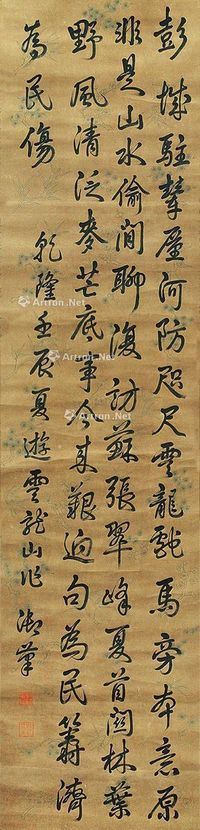 彭城駐輦河防咫尺雲龍戲馬旁本意原
非是山水偷閒聊復訪蘇張翠峰夏首林葉
野風清泛麥芒底事今來艱迫句為民籌濟
為民傷
乾隆壬辰夏遊雲龍山作
御筆
Artron.Net
Artron.Net
Artron.Net
Artron.Net